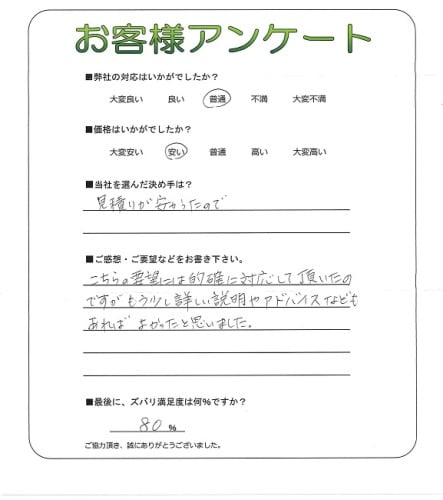 お客様アンケート
■弊社の対応はいかがでしたか?
大変良い 良い 普通 不満 大変不満
■価格はいかがでしたか?
大変安い 安い 普通 高い 大変高い
■当社を選んだ決め手は?
見積りが安かったので
■ご感想・ご要望などをお書き下さい。
こちらの要望には的確に対応して頂いたの
ですがもう少し詳しい説明やアドバイスなども
あればよかったと思いました。
■最後に、ズバリ満足度は何%ですか?
80 %
ご協力頂き、誠にありがとうございました。